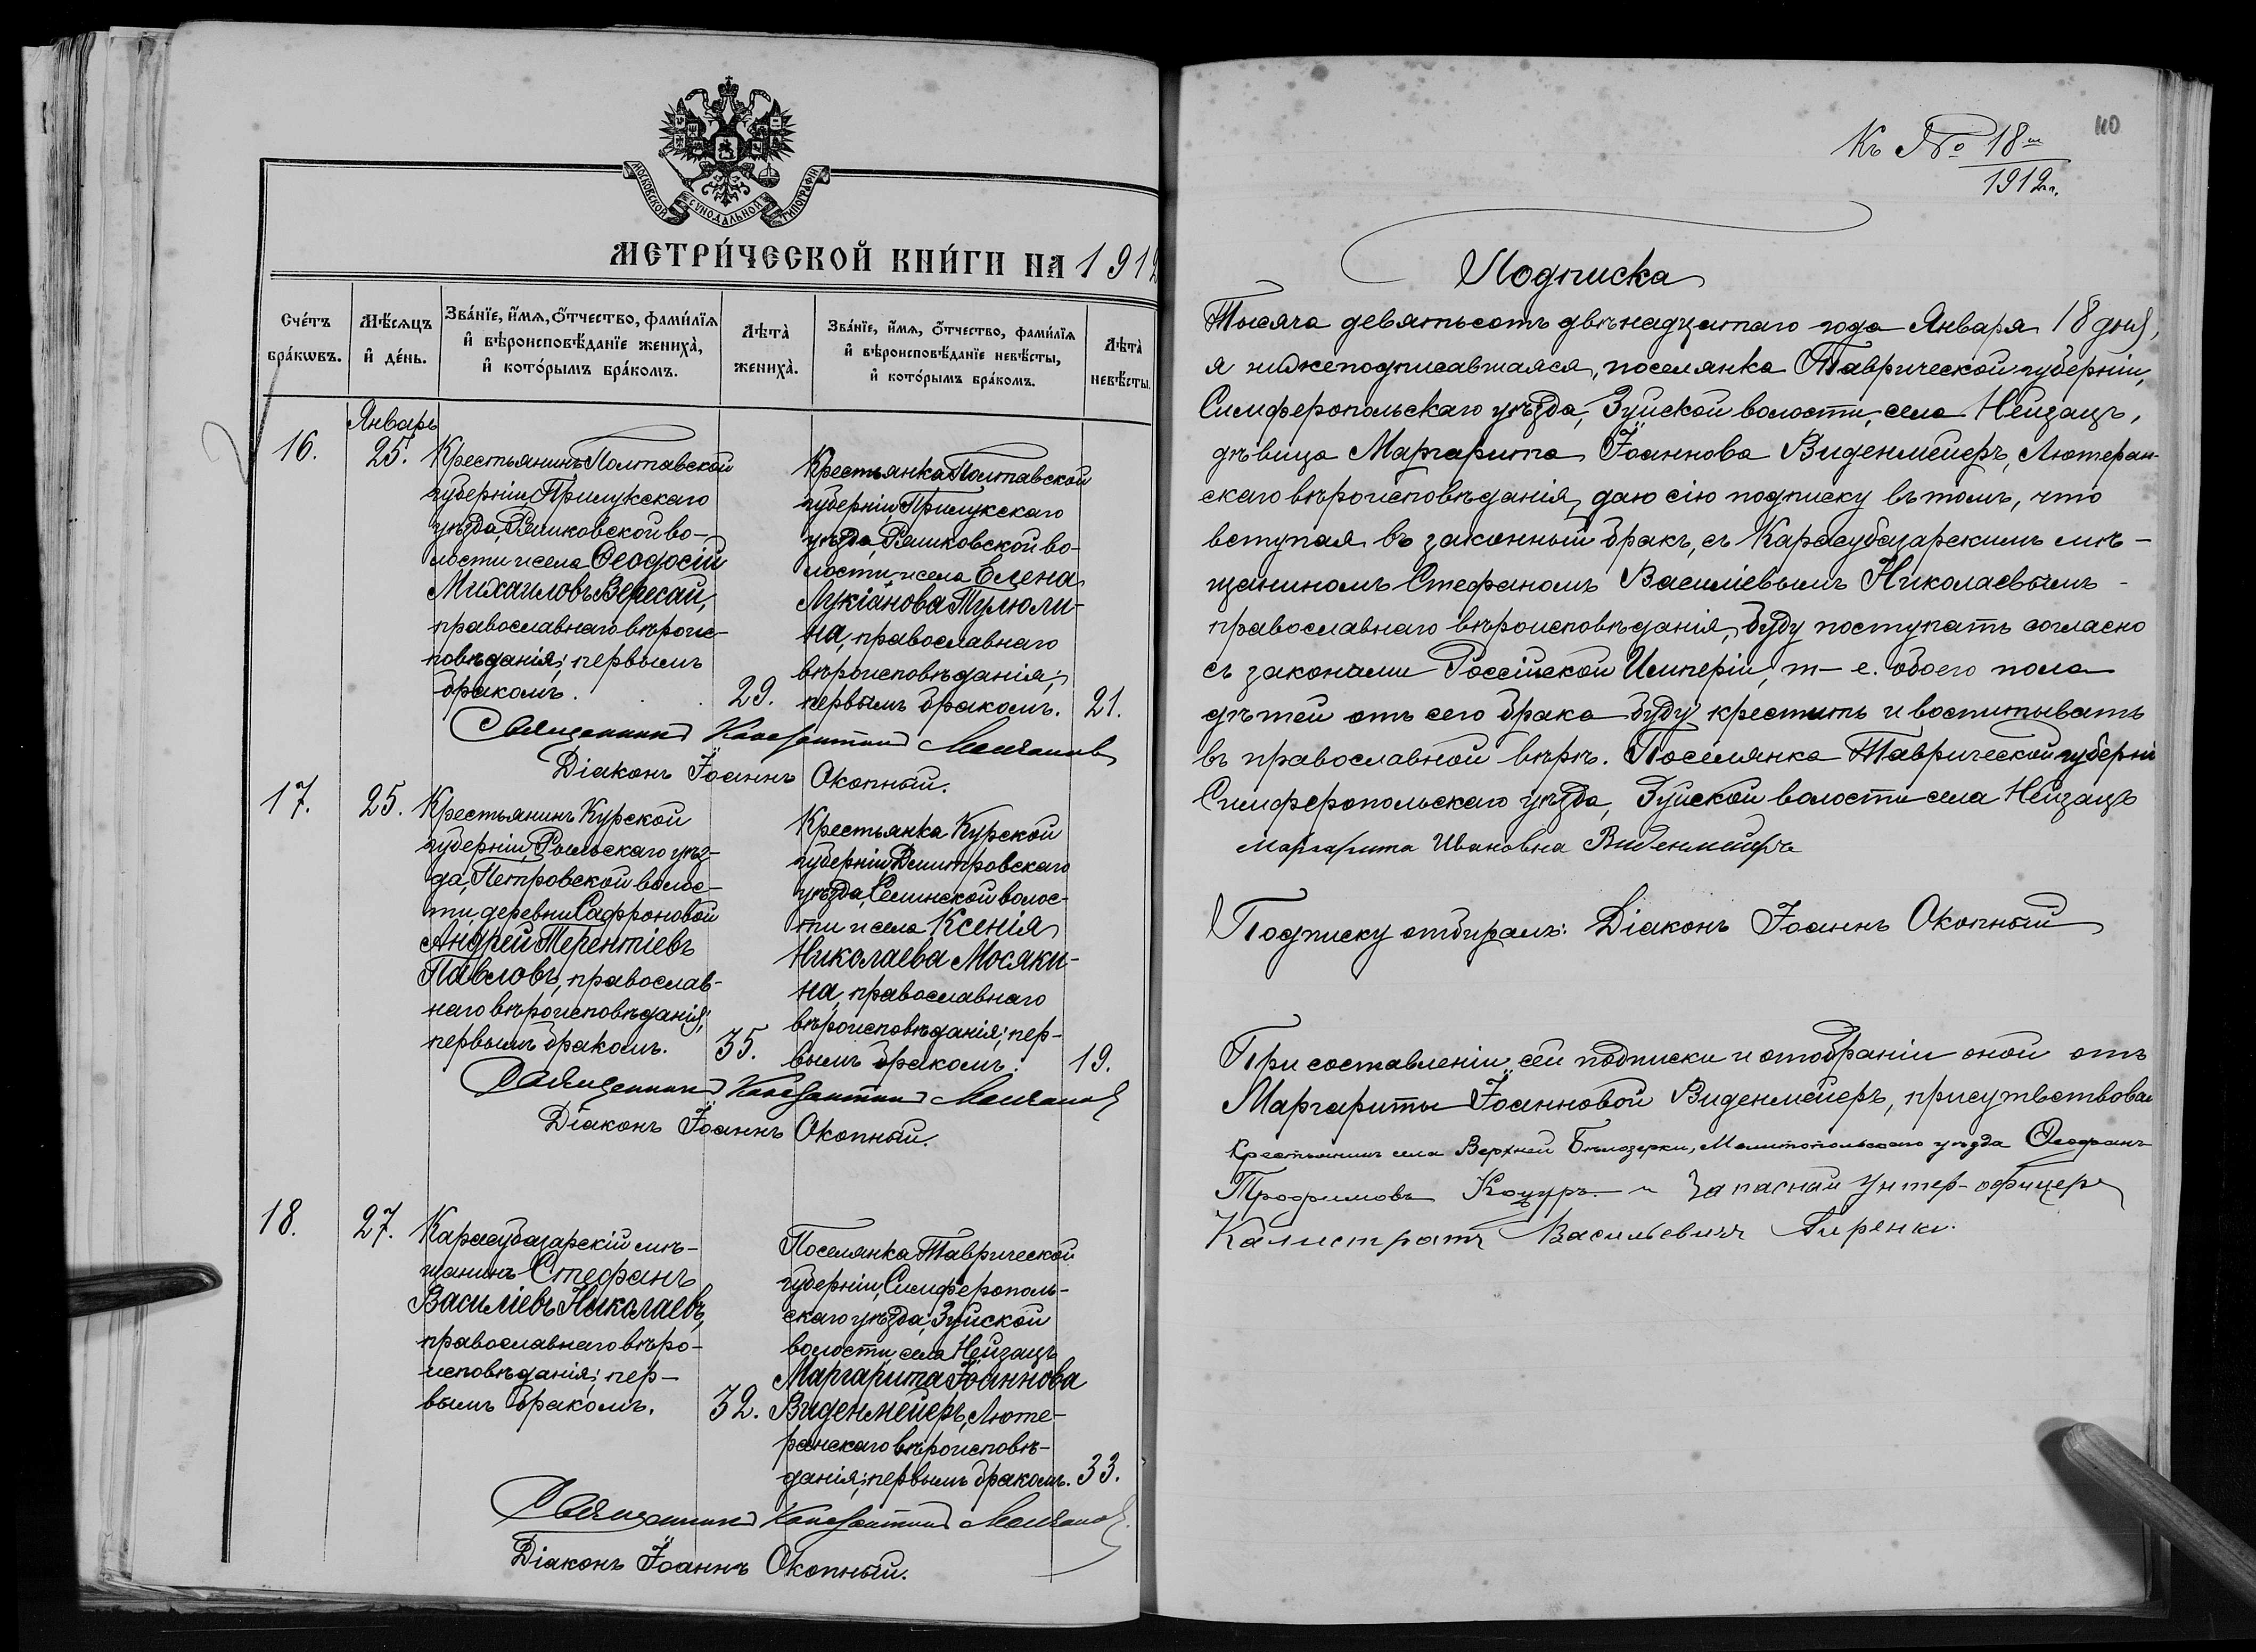 МОСКОВСКОЙ СѴНОДАЛЬНОЙ ТИПОГРАФІИ
МЕТРИ́ЧЕСКОЙ КНИ́ГИ НА 1912
Сче́тъ бра́кѡвъ.
Мѣ́сяцъ и҆ де́нь.
Зва́нїе, и҆́мя, о҆́тчество, фами́лїя
и҆ вѣроисповѣ́данїе жениха̀,
и҆ кото́рымъ бра́комъ.
Лѣта̀ жениха̀.
Зва́нїе, и҆́мя, о҆́тчество, фами́лїя
и҆ вѣроисповѣ́данїе невѣ́сты,
и҆ кото́рымъ бра́комъ.
Лѣта̀ невѣ́сты.
Январь
16.
25.
Крестьянинъ Полтавской
губерніи, Прилукскаго
уѣзда, Ряшковской во-
лости и села Ѳеодосій
Михаиловъ Вересай,
православнаго вѣроис-
повѣданія; первымъ
бракомъ.
29.
Крестьянка Полтавской
губерніи, Прилукскаго
уѣзда, Ряшковской во-
лости и села Елена
Лукіанова Тулюли-
на, православнаго
вѣроисповѣданія;
первымъ бракомъ.
21.
Священникъ Константинъ Молчановъ
Діаконъ Іоаннъ Окопный.
17.
25.
Крестьянинъ Курской
губерніи, Рыльскаго уѣз-
да, Петровской волос-
ти, деревни Сафроновой
Андрей Терентіевъ
Павловъ, православ-
наго вѣроисповѣданія;
первымъ бракомъ.
35.
Крестьянка Курской
губерніи Дмитровскаго
уѣзда, Селинской волос-
ти и села Ксенія
Николаева Мосяки-
на, православнаго
вѣроисповѣданія; пер-
вымъ бракомъ.
19.
Священникъ Константинъ Молчановъ
Діаконъ Іоаннъ Окопный.
18.
27.
Карасубазарскій мѣ-
щанинъ Стефанъ
Василіевъ Николаевъ,
православнаго вѣро-
исповѣданія; пер-
вымъ бракомъ.
32.
Поселянка Таврической
губерніи, Симферополь-
скаго уѣзда, Зуйской
волости, села Нейзацъ
Маргарита Іоаннова
Виденмейеръ, Люте-
ранскаго вѣроисповѣ-
данія; первымъ бракомъ.
33.
Священникъ Константинъ Молчановъ
Діаконъ Іоаннъ Окопный.
110
Къ № 18-м
1912 г.
Подписка
Тысяча девятьсотъ двѣнадцатаго года Января 18 дня,
я нижеподписавшаяся, поселянка Таврической губерніи,
Симферопольскаго уѣзда, Зуйской волости, села Нейзацъ,
дѣвица Маргарита Іоаннова Виденмейеръ, Лютеран-
скаго вѣроисповѣданія, даю сію подписку въ томъ, что
вступая въ законный бракъ, съ Карасубазарскимъ мѣ-
щаниномъ Стефаномъ Василіевымъ Николаевымъ -
православнаго вѣроисповѣданія, буду поступать согласно
съ законами Россійской Имперіи, т-е. обоего пола
дѣтей отъ сего брака буду крестить и воспитывать
въ православной вѣрѣ. Поселянка Таврической губерніи
Симферопольскаго уѣзда, Зуйской волости села Нейзацъ
Маргарита Ивановна Виденмейеръ
Подписку отбиралъ: Діаконъ Іоаннъ Окопный
При составленіи сей подписки и отобраніи оной отъ
Маргариты Іоанновой Виденмейеръ, присутствовали
Крестьянинъ села Верхней Бѣлозерки, Мелитопольскаго уѣзда Ѳеофанъ
Трофимовъ Коцуръ и Запасный унтер-офицеръ
Калистратъ Васильевичъ